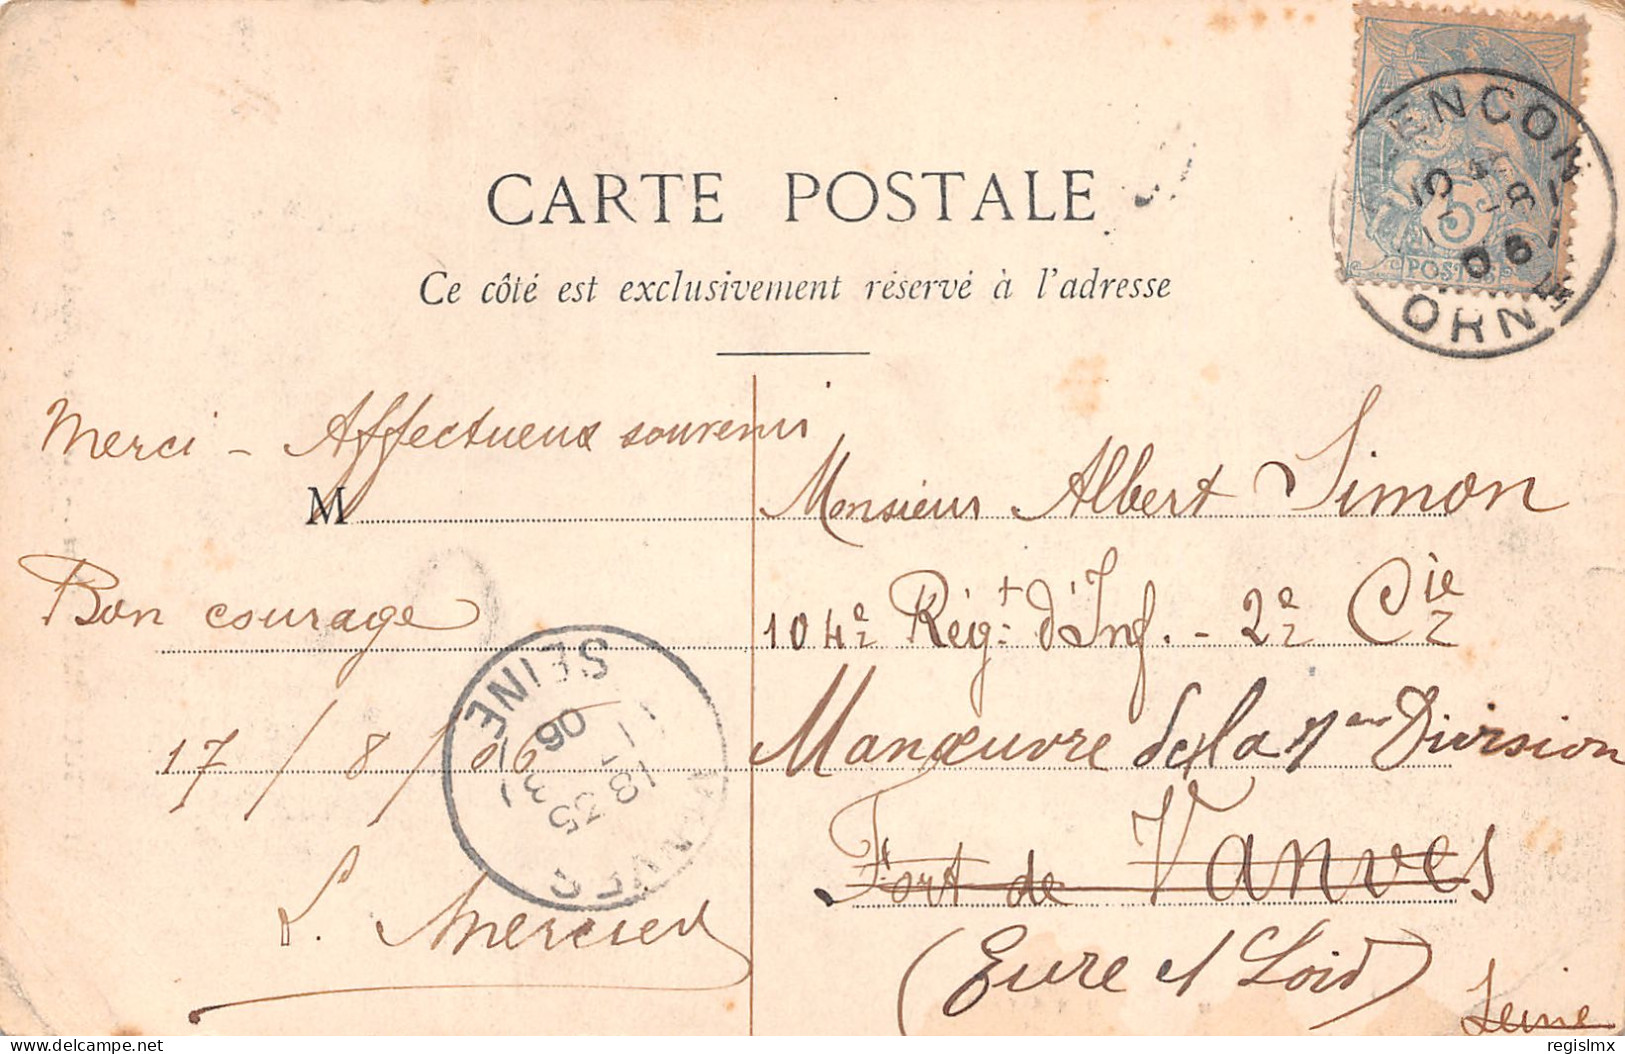 CARTE POSTALE
Ce côté est exclusivement réservé à l'adresse
ENCON
ORNE
06
5
POSTES
Merci - Affectueux souvenir
M
Bon courage
17/8/06
L. Mercier
SEINE
18
35
06
Monsieur Albert Simon
104e Régt d'Inf. - 2e Cie
Manœuvre de la Division
Fort de Vanves
(Eure et Loir)
Seine
delcampe.net
regislmx